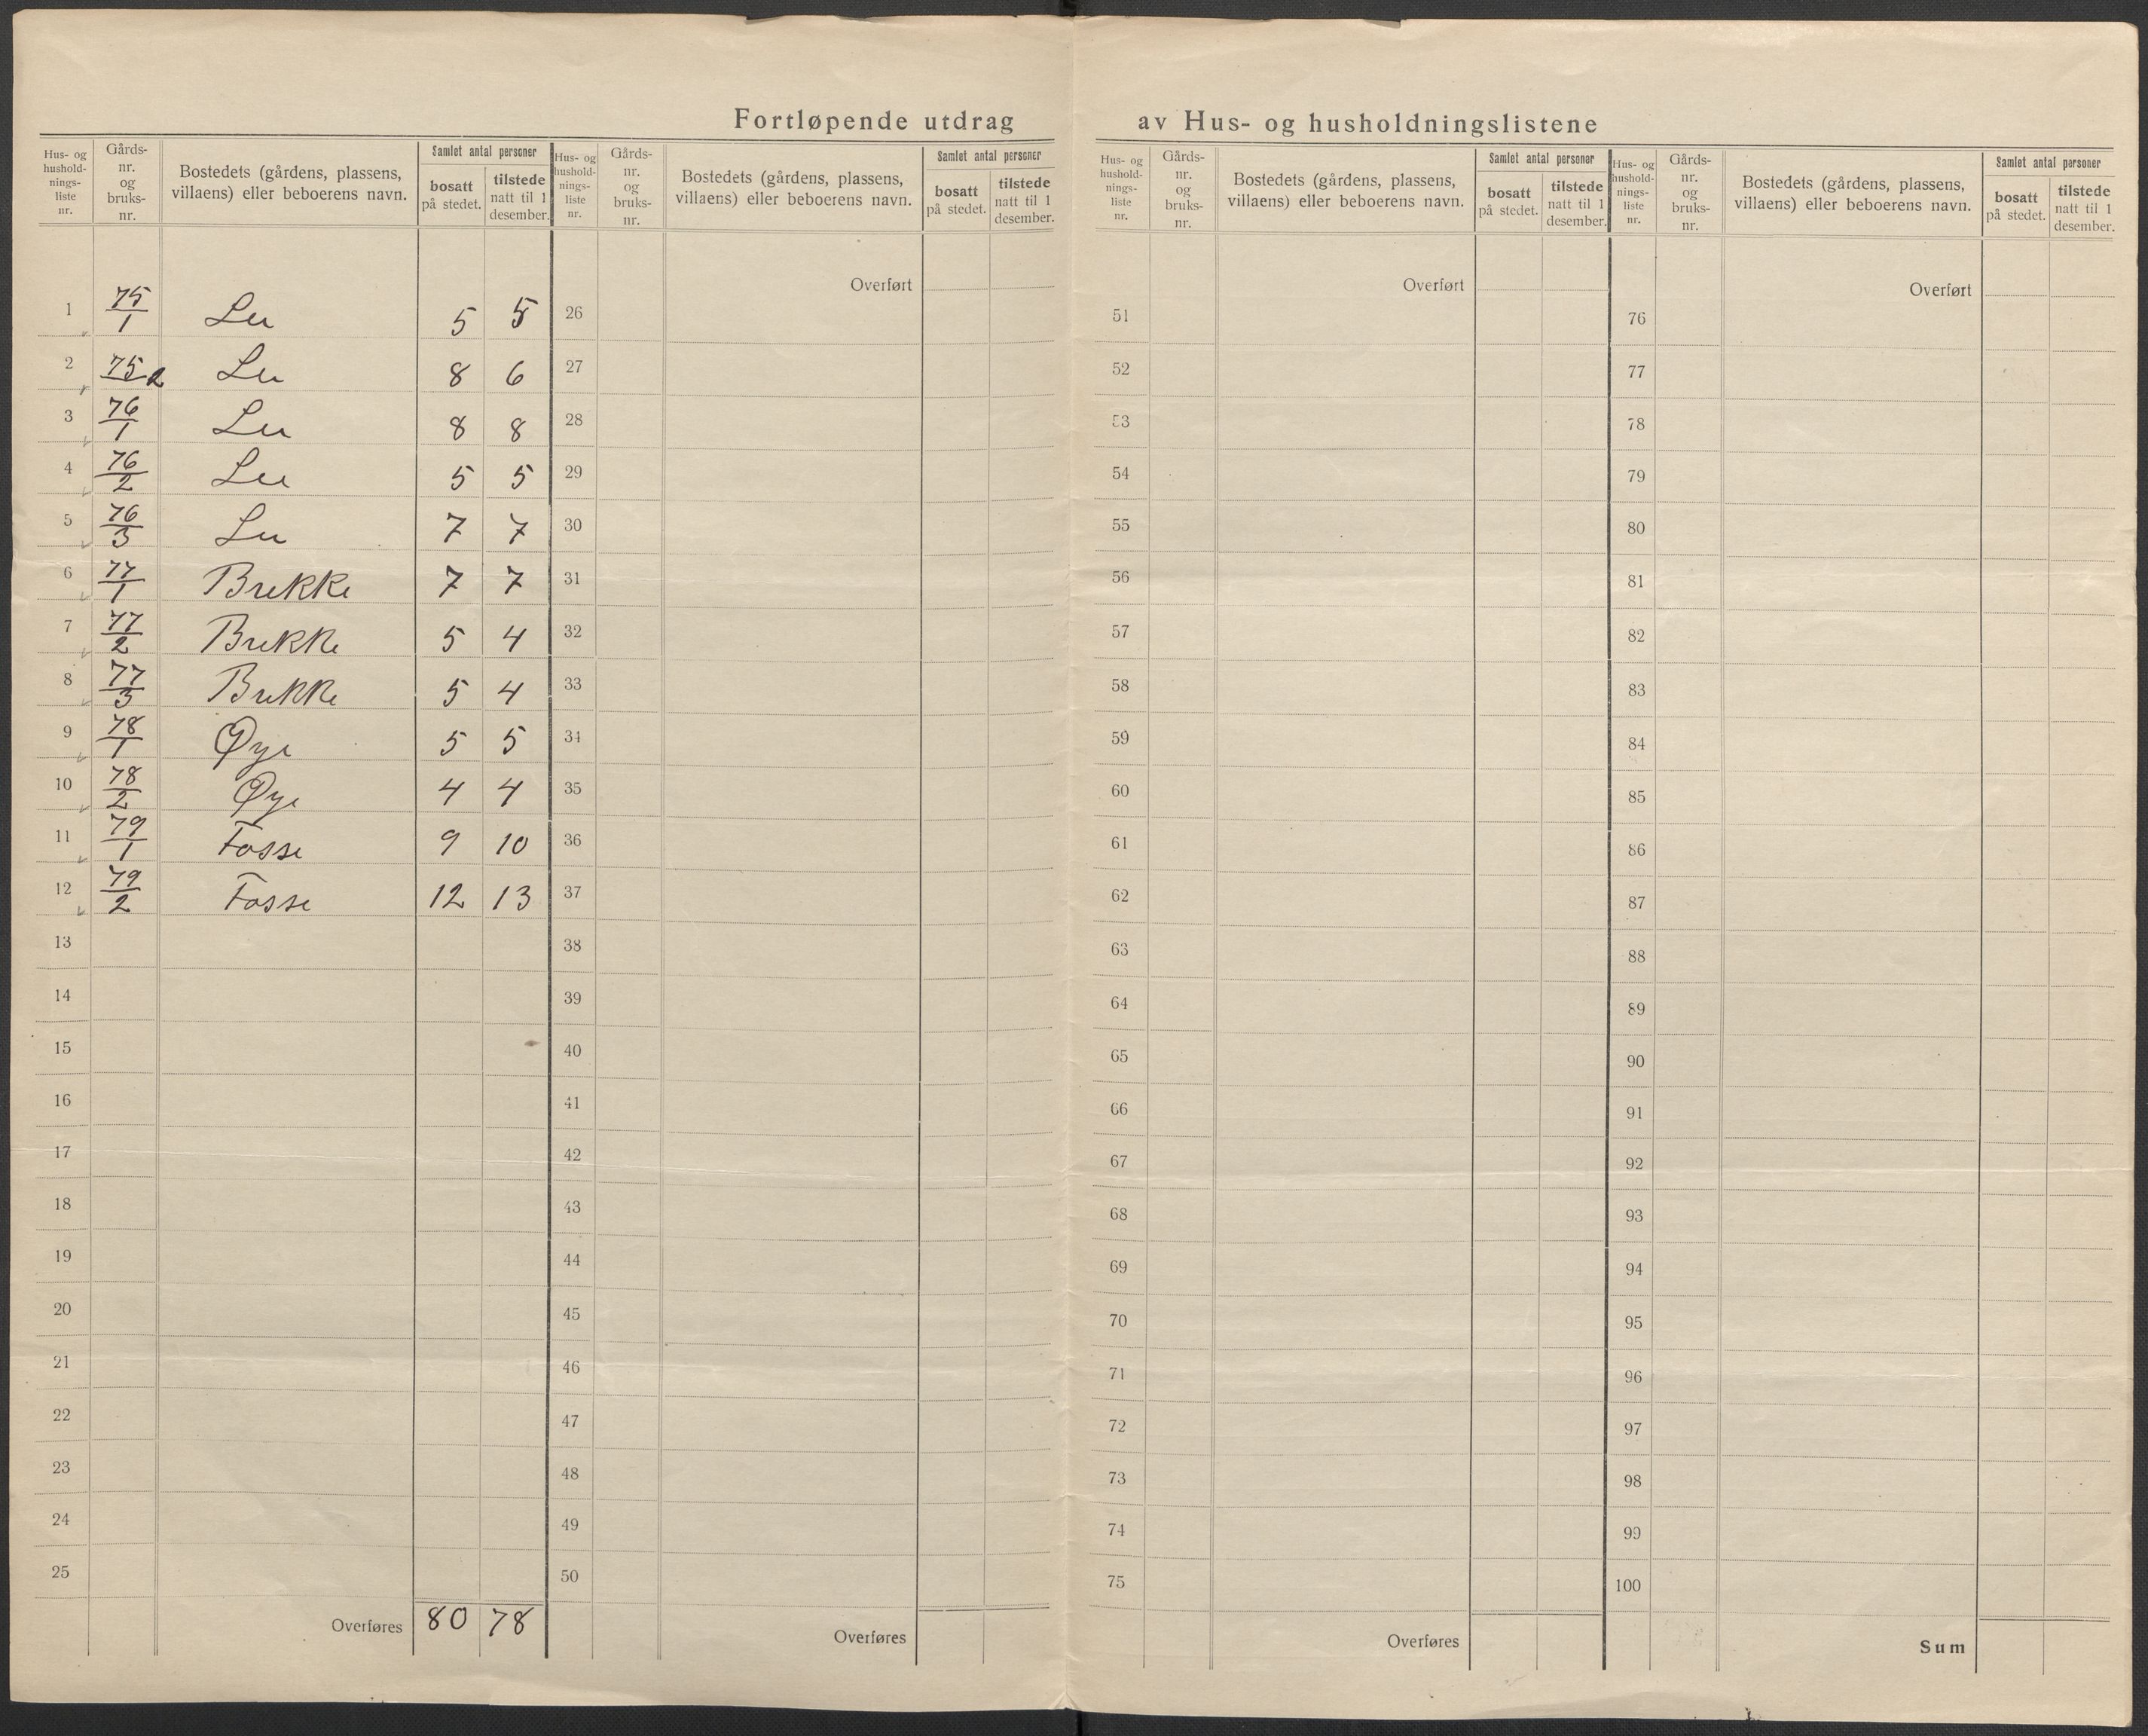 Fortløpende utdrag av Hus- og husholdningslistene
Hus- og hushold-nings-liste nr. Gårds-nr. og bruks-nr. Bostedets (gårdens, plassens, villaens) eller beboerens navn. Samlet antal personer bosatt på stedet. tilstede natt til 1 desember.
1 75/1 Lu 5 5
2 75/2 Lu 8 6
3 76/1 Lu 8 8
4 76/2 Lu 5 5
5 76/3 Lu 7 7
6 77/1 Brekke 7 7
7 77/2 Brekke 5 4
8 77/3 Brekke 5 4
9 78/1 Øye 5 5
10 78/2 Øye 4 4
11 79/1 Fosse 9 10
12 79/2 Fosse 12 13
13
14
15
16
17
18
19
20
21
22
23
24
25
Overføres 80 78
Hus- og hushold-nings-liste nr. Gårds-nr. og bruks-nr. Bostedets (gårdens, plassens, villaens) eller beboerens navn. Samlet antal personer bosatt på stedet. tilstede natt til 1 desember.
Overført
26
27
28
29
30
31
32
33
34
35
36
37
38
39
40
41
42
43
44
45
46
47
48
49
50
Overføres
Hus- og hushold-nings-liste nr. Gårds-nr. og bruks-nr. Bostedets (gårdens, plassens, villaens) eller beboerens navn. Samlet antal personer bosatt på stedet. tilstede natt til 1 desember.
Overført
51
52
53
54
55
56
57
58
59
60
61
62
63
64
65
66
67
68
69
70
71
72
73
74
75
Overføres
Hus- og hushold-nings-liste nr. Gårds-nr. og bruks-nr. Bostedets (gårdens, plassens, villaens) eller beboerens navn. Samlet antal personer bosatt på stedet. tilstede natt til 1 desember.
Overført
76
77
78
79
80
81
82
83
84
85
86
87
88
89
90
91
92
93
94
95
96
97
98
99
100
Sum